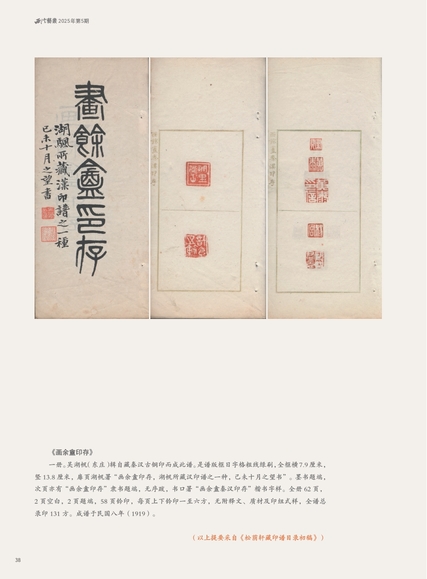 西泠藝叢 2025年第5期
畫餘盦印存
湖颿所藏漢印譜之一種
己未十月之望書
《画余盦印存》
一册，吴湖帆（东庄）辑自藏秦汉古铜印而成此谱。是谱版框日字格粗线绿刷，全框横7.9厘米，
竖13.8厘米，扉页湖帆署“画余盦印存，湖帆所藏汉印谱之一种，己未十月之望书”。墨书题端，
次页亦有“画余盦印存”隶书题端，无序跋，书口署“画余盦秦汉印存”楷书字样。全册62页，
2页空白，2页题端，58页钤印，每页上下钤印一至六方，无附释文、质材及印纽式样，全谱总
录印131方。成谱于民国八年（1919）。
（以上提要采自《松荫轩藏印谱目录初稿》）
38